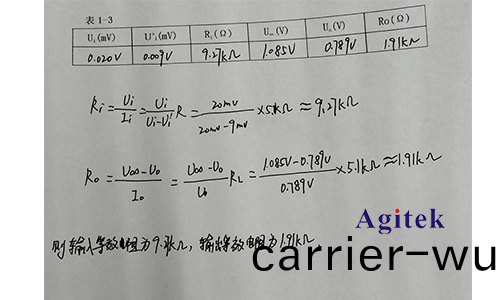 表 1-3
Ui(mV) U'i(mV) Ri(Ω) U∞(mV) Uo(mV) Ro(Ω)
0.020V 0.009V 9.27kΩ 1.085V 0.789V 1.91kΩ
Ri = Ui/Ii = Ui/(Ui-Ui') R = 20mV/(20mV-9mV) ×5.1kΩ ≈ 9.27kΩ
Ro = (U∞-Uo)/Io = (U∞-Uo)/Uo RL = (1.085V-0.789V)/0.789V ×5.1kΩ ≈ 1.91kΩ
Agitek
则输入等效电阻为9.3kΩ, 输出等效电阻为1.91kΩ.
carrier-wu